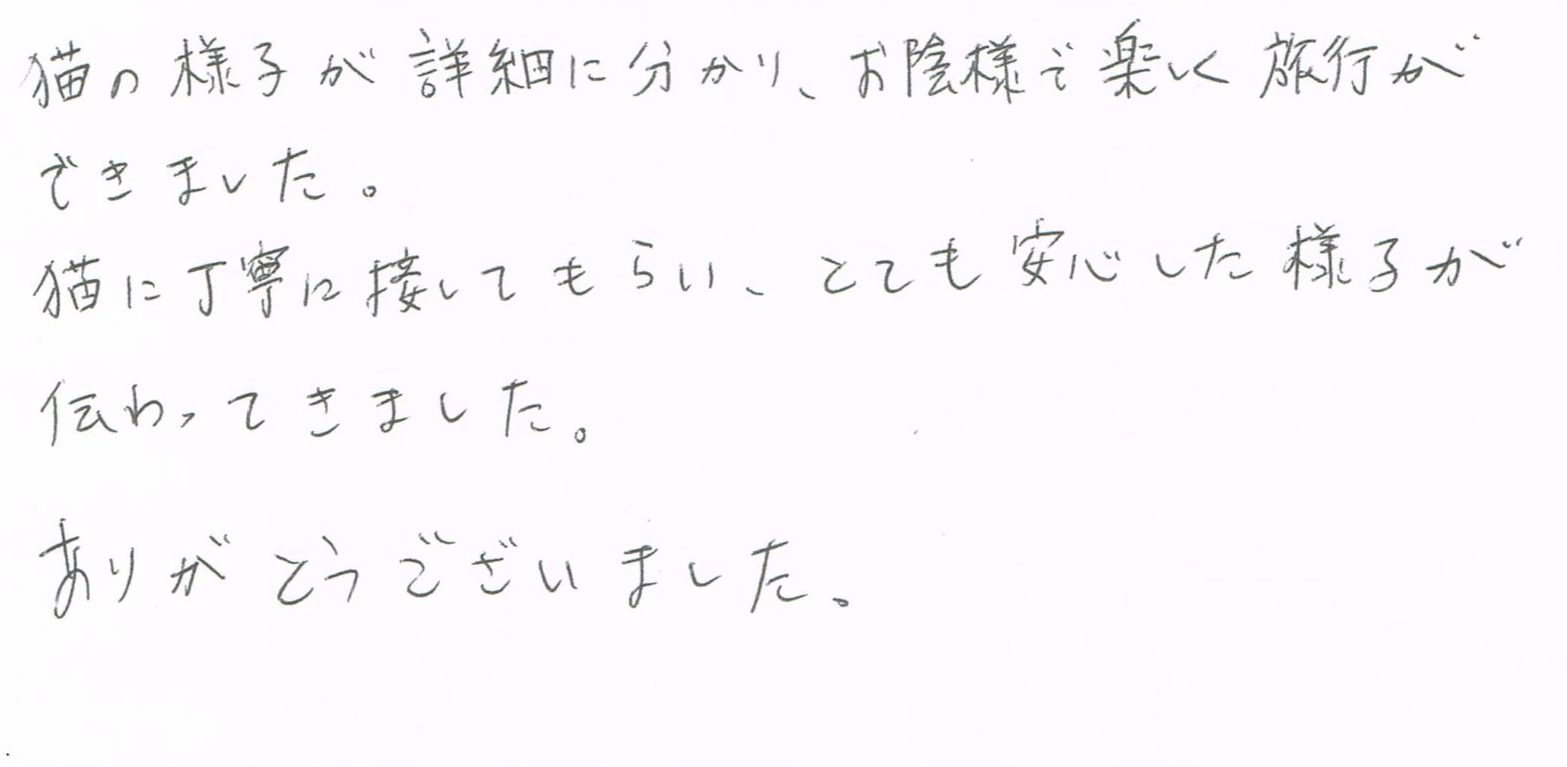 猫の様子が詳細に分かり、お陰様で楽しく旅行が
できました。
猫に丁寧に接してもらい、とても安心した様子が
伝わってきました。
ありがとうございました。